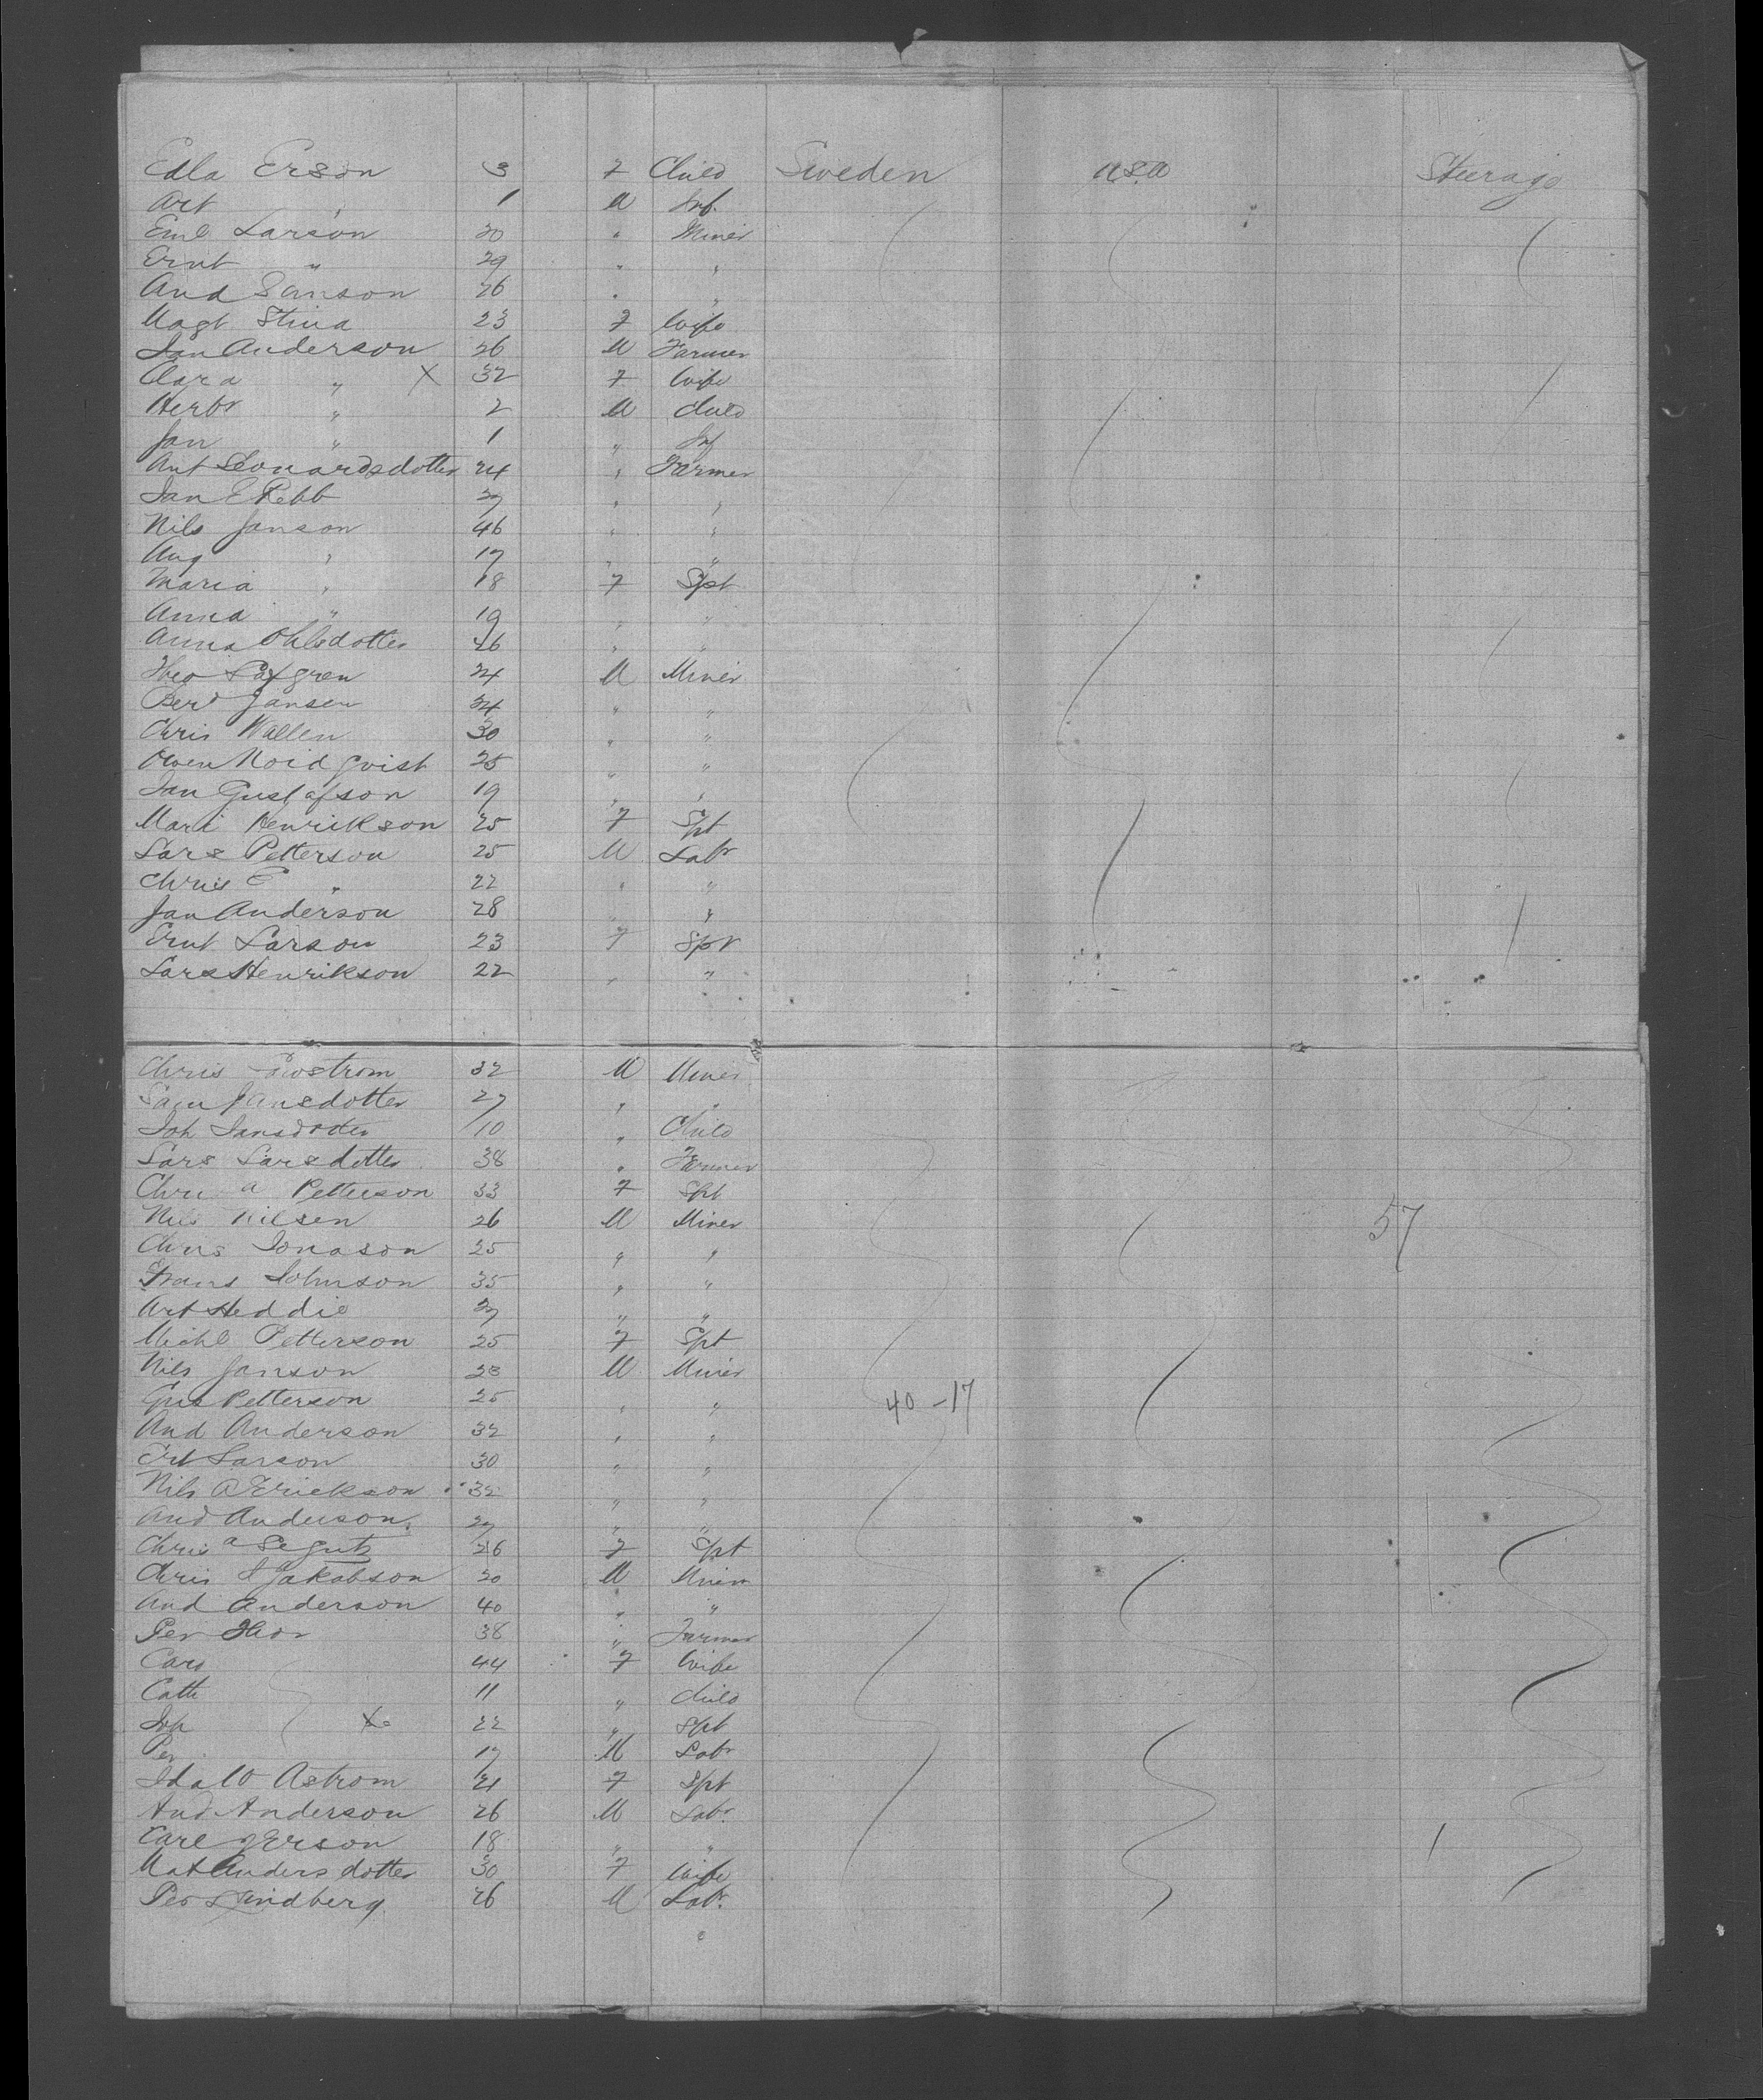 Edla Erson 3 F Child Sweden USA Steerage
Art " 1 M Inf.
Emil Larson 30 " Miner
Ernt " 29 " "
And Janson 26 " "
Magt Stina 23 F Wife
Jan Anderson 26 M Farmer
Clara " X 32 F Wife
Herbr " 2 M Child
Jan " 1 " Inf
Ant Leonardsdotter 24 " Farmer
Jan E Rebb 27 " "
Nils Janson 46 " "
Aug " 17 " "
Maria " 18 F Spt
Anna " 19 " "
Anna Ohlsdotter 26 " "
Theo Lofgren 24 M Miner
Bert Jansen 24 " "
Chris Wallen 30 " "
Noidqvist 25 " "
Jan Gustafson 19 " "
Mari Henrikson 25 F Spt
Lars Petterson 25 M Labr
Chris E " 22 " "
Jan Anderson 28 " "
Ernt Larson 23 F Spr
Lars Henrikson 22 " "
Chris 32 M Miner
Sam Jansdotter 27 " "
Joh Jansdotter 10 " Child
Lars Larsdotter 38 " Farmer
Chri a Petterson 33 F Spt
Nils Nilsen 26 M Miner 57
Chris Jonason 25 " "
Frans Johnson 35 " "
Art Heddie 27 " "
Michl Petterson 25 F Spt
Nils Janson 23 M Miner
Gus Petterson 25 " " 40-17
And Anderson 32 " "
Ert Larson 30 " "
Nils A Erickson 32 " "
And Anderson 27 " "
Chris a 26 F Spt
Chris J Jakobson 20 M Miner
And Anderson 40 " "
Per Thor 38 " Farmer
Caro 44 F Wife
Cath 11 " Child
Joh X 22 " Spt
Per 17 M Labr
Ida W Astrom 21 F Spt
And Anderson 26 M Labr
Carl J Erson 18 " "
Mat Andersdotter 30 F Wife
Per Lindberg 26 M Labr.